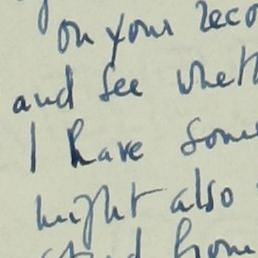 on your reco
and see wheth
I have some
might also